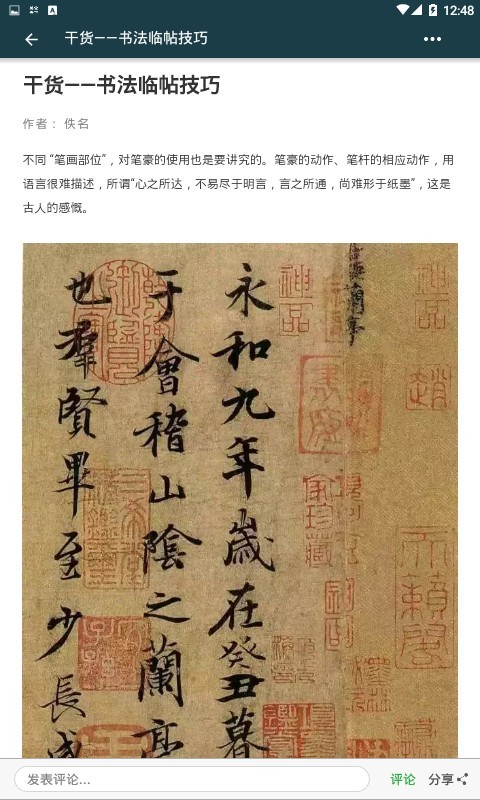 12:48
干货——书法临帖技巧
干货——书法临帖技巧
作者：佚名
不同“笔画部位”，对笔豪的使用也是要讲究的。笔豪的动作、笔杆的相应动作，用
语言很难描述，所谓“心之所达，不易尽于明言，言之所通，尚难形于纸墨”，这是
古人的感慨。
永和九年歲在癸丑暮
于會稽山陰之蘭亭
也羣賢畢至少長咸
发表评论...
评论
分享